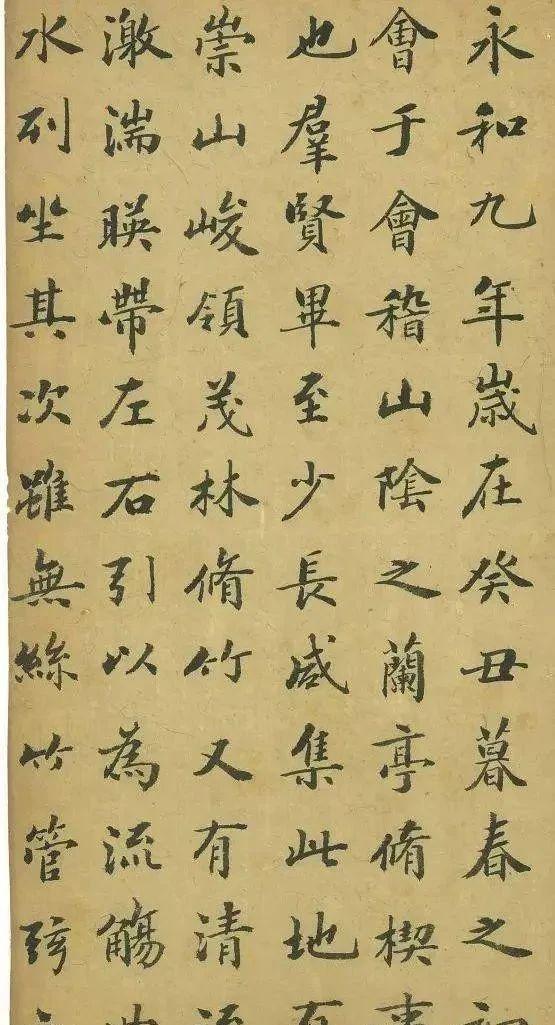 永和九年歲在癸丑暮春之初
會于會稽山陰之蘭亭脩楔事
也羣賢畢至少長咸集此地有
崇山峻領茂林脩竹又有清流
激湍暎帶左右引以為流觴曲
水列坐其次雖無絲竹管弦